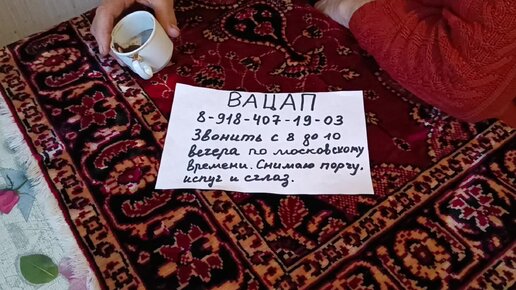 ВАЦАП
8-918-407-19-03
Звонить с 8 до 10
вечера по московскому
времени. Снимаю порчу,
испуг и сглаз.